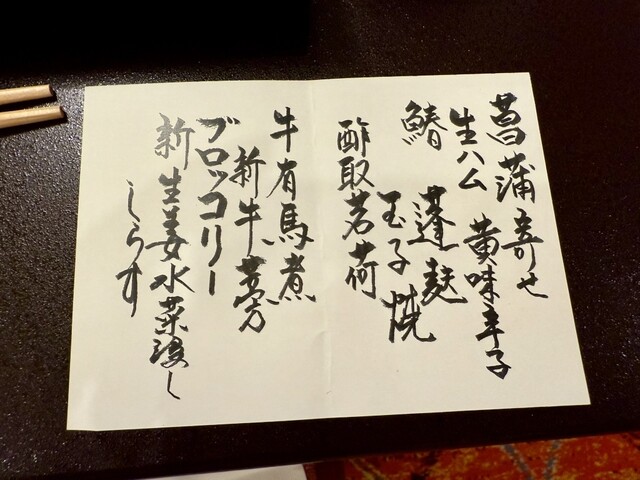 菖蒲寄せ
生ハム 黄味辛子
鰆 蓬麸
玉子焼
酢取茗荷
牛有馬煮
新牛蒡
ブロッコリー
新生姜水菜浸し
しらす